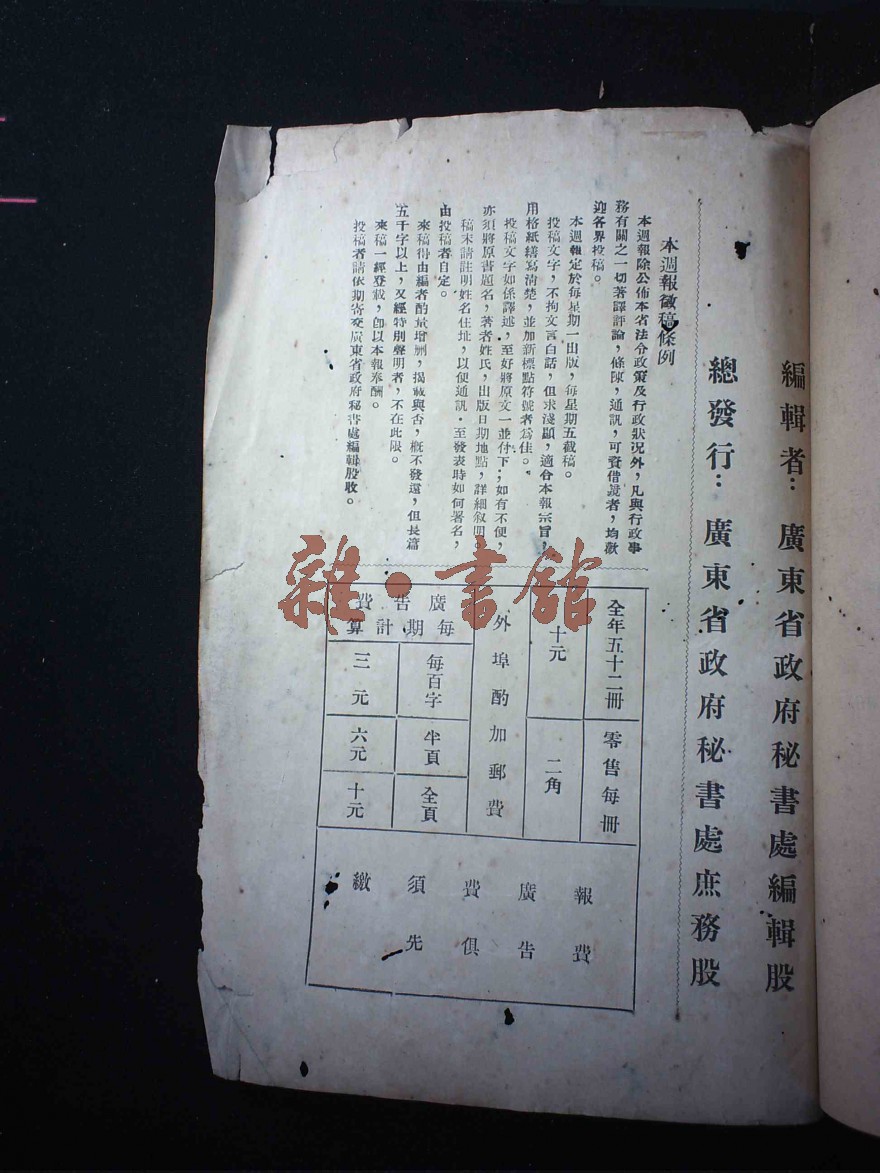 編輯者：廣東省政府秘書處編輯股
總發行：廣東省政府秘書處庶務股
本週報徵稿條例
本週報除公佈本省法令政策及行政狀况外，凡與行政事
務有關之一切著譯評論，條陳，通訊，可資借鏡者，均歡
迎各界投稿。
本週報定於每星期一出版，每星期五截稿。
投稿文字，不拘文言白話，但求淺顯，適合本報宗旨，
用格紙繕寫清楚，並加新標點符號者為佳。
投稿文字如係譯述，至好將原文一並付下；如有不便，
亦須將原書題名，著者姓氏，出版日期地點，詳細叙明。
稿末請註明姓名住址，以便通訊．至發表時如何署名，
由投稿者自定。
來稿得由編者酌量增刪，揭載與否，概不發還，但長篇
五千字以上，又經特別聲明者，不在此限。
來稿一經登載，卽以本報奉酬。
投稿者請依期寄交廣東省政府秘書處編輯股收。
全年五十二冊 零售每冊
十元 二角
外埠酌加郵費
廣告費
每期計算
每百字 半頁 全頁
三元 六元 十元
報費
廣告
費俱
須先
繳
雜·書館